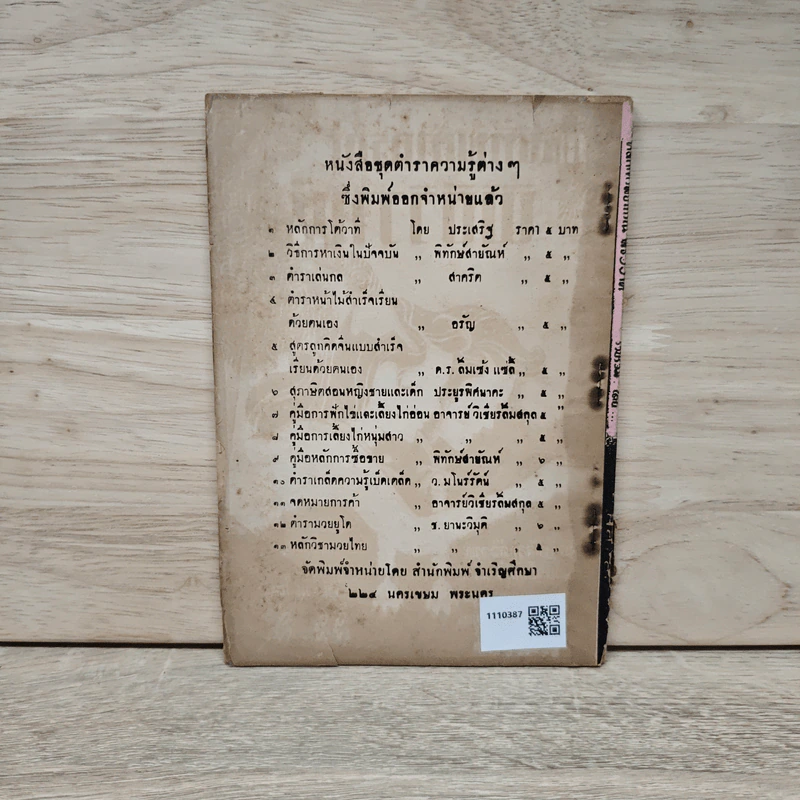 หนังสือชุดตำราความรู้ต่าง ๆ
ซึ่งพิมพ์ออกจำหน่ายแล้ว
๑ หลักการโต้วาที โดย ประเสริฐ ราคา ๕ บาท
๒ วิธีการหาเงินในปัจจุบัน ,, พิทักษ์สายัณห์ ,, ๕ ,,
๓ ตำราเล่นกล ,, สาคริต ,, ๕ ,,
๔ ตำราหน้าไม้สำเร็จเรียน
ด้วยตนเอง ,, อรัญ ,, ๕ ,,
๕ สูตรลูกคิดจีนแบบสำเร็จ
เรียนด้วยตนเอง ,, ด.ร. ลิ้มเซ้ง แซ่ลี้ ,, ๕ ,,
๖ สุภาษิตสอนหญิงชายและเด็ก ประยูรพิศนาคะ ,, ๕ ,,
๗ คู่มือการฟักไข่และเลี้ยงไก่อ่อน อาจารย์วิเชียรลิ้มสกุล ๕ ,,
๘ คู่มือการเลี้ยงไก่หนุ่มสาว ,, ,, ,, ๕ ,,
๙ คู่มือหลักการซื้อขาย ,, พิทักษ์สายัณห์ ,, ๖ ,,
๑๐ ตำราเกล็ดความรู้เบ็ดเตล็ด ,, ว. มโนร์รัตน์ ,, ๕ ,,
๑๑ จดหมายการค้า ,, อาจารย์วิเชียรลิ้มสกุล ๕ ,,
๑๒ ตำรามวยยูโด ,, ช. ยานะวิมุติ ,, ๖ ,,
๑๓ หลักวิชามวยไทย ,, ,, , ๕ ,,
จัดพิมพ์จำหน่ายโดย สำนักพิมพ์ จำเริญศึกษา
๒๒๔ นครเขษม พระนคร
1110387